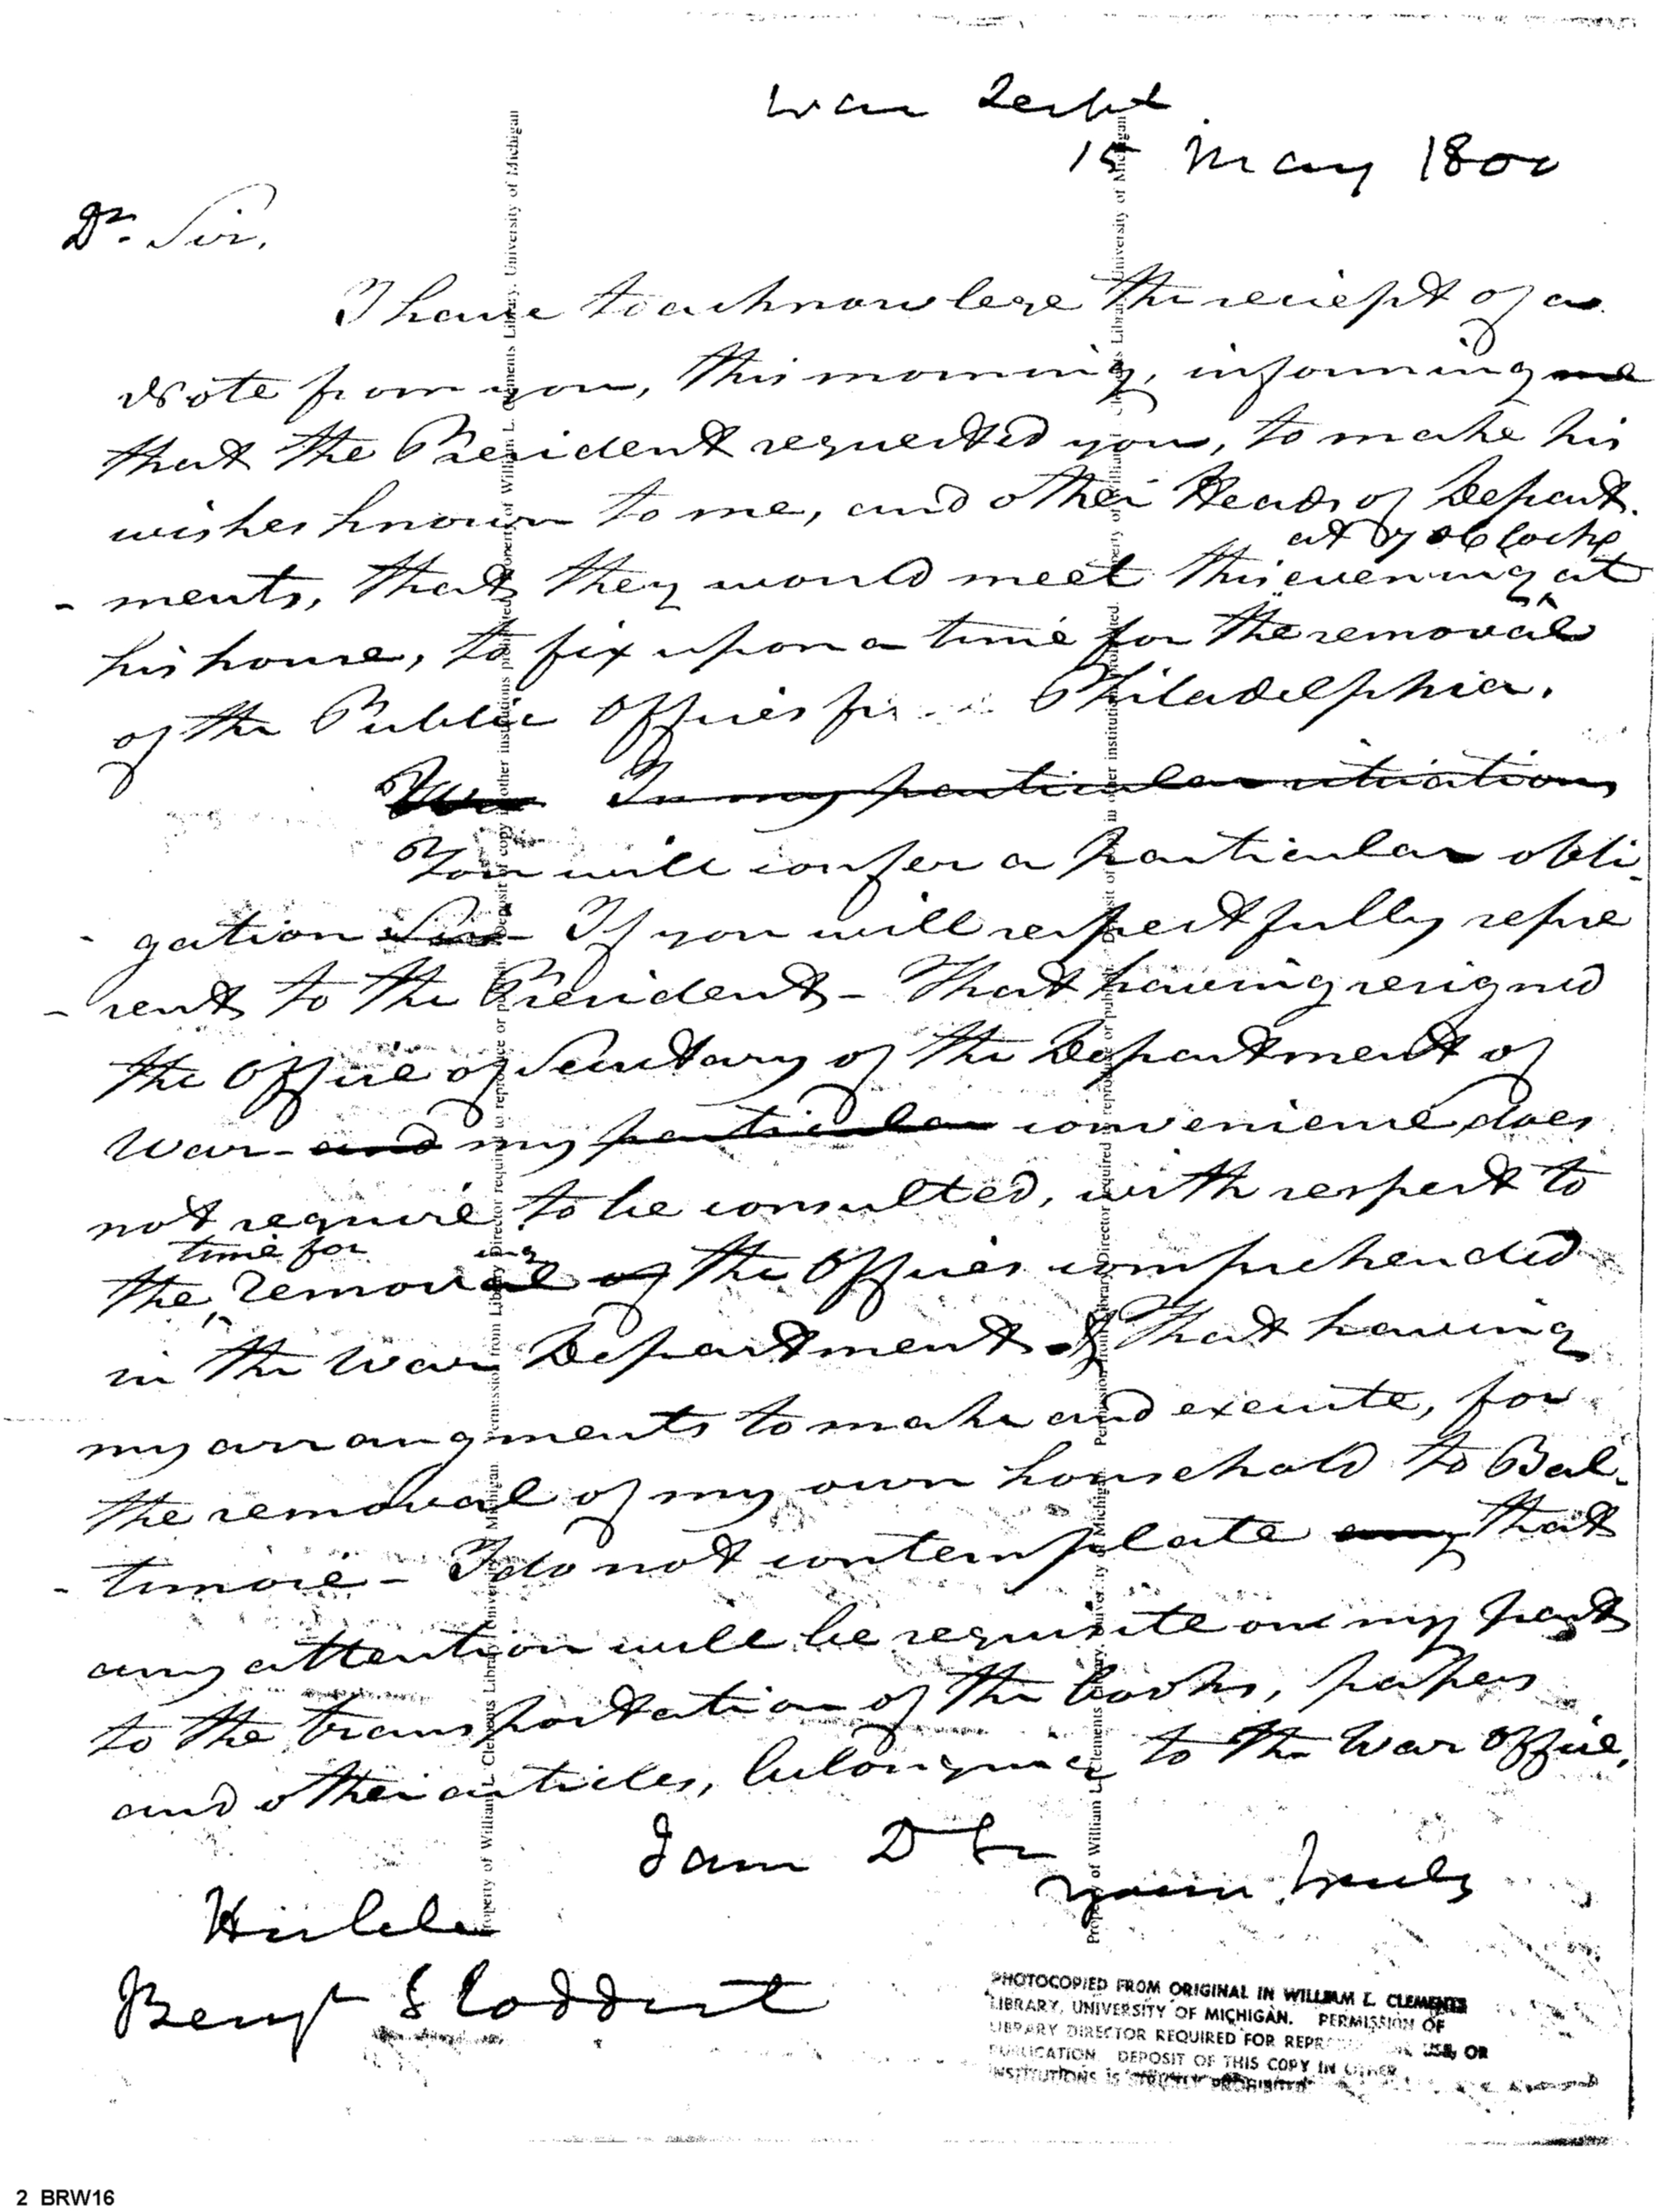 War Deptt.
15 May 1800
Dr. Sir,
I have to acknowlege the reciept of a
Note from you, this morning, informing me
that the President requested you, to make his
wishes known to me, and other Heads of Depart.
at 7 oClock
- ments, that they would meet this evening at
his house, to fix upon a time for the removal
of the Public Offices Philadelphia.
In my particular situation
You will confer a particular obli-
- gation Sir - If you will respectfully repre
- sent to the President - That having resigned
the Office of Secretary of the Department of
War - and my particular convenience does
not require to be consulted, with respect to
time for ing
the removal of the Offices comprehended
in the War Department - That having
my arrangments to make and execute, for
the removal of my own household to Bal-
- timore - I do not contemplate any that
any attention will be requisite on my part
to the transportation of the books, papers
and other articles, belonging to the War Office,
I am D Sr
yours truly
Honble
Benj Stoddert
PHOTOCOPIED FROM ORIGINAL IN WILLIAM L. CLEMENTS
LIBRARY, UNIVERSITY OF MICHIGAN. PERMISSION OF
LIBRARY DIRECTOR REQUIRED FOR USE, OR
PUBLICATION. DEPOSIT OF THIS COPY IN OTHER
INSTITUTIONS IS STRICTLY PROHIBITED
Property of William L. Clements Library, University of Michigan. Permission from Library Director required to reproduce or publish. Deposit of copy in other institutions prohibited.
Property of William L. Clements Library, University of Michigan
Property of William L. Clements Library, University of Michigan. Permission from Library Director required to reproduce or publish. Deposit of copy in other institutions prohibited.
Property of William L. Clements Library, University of Michigan
2 BRW16